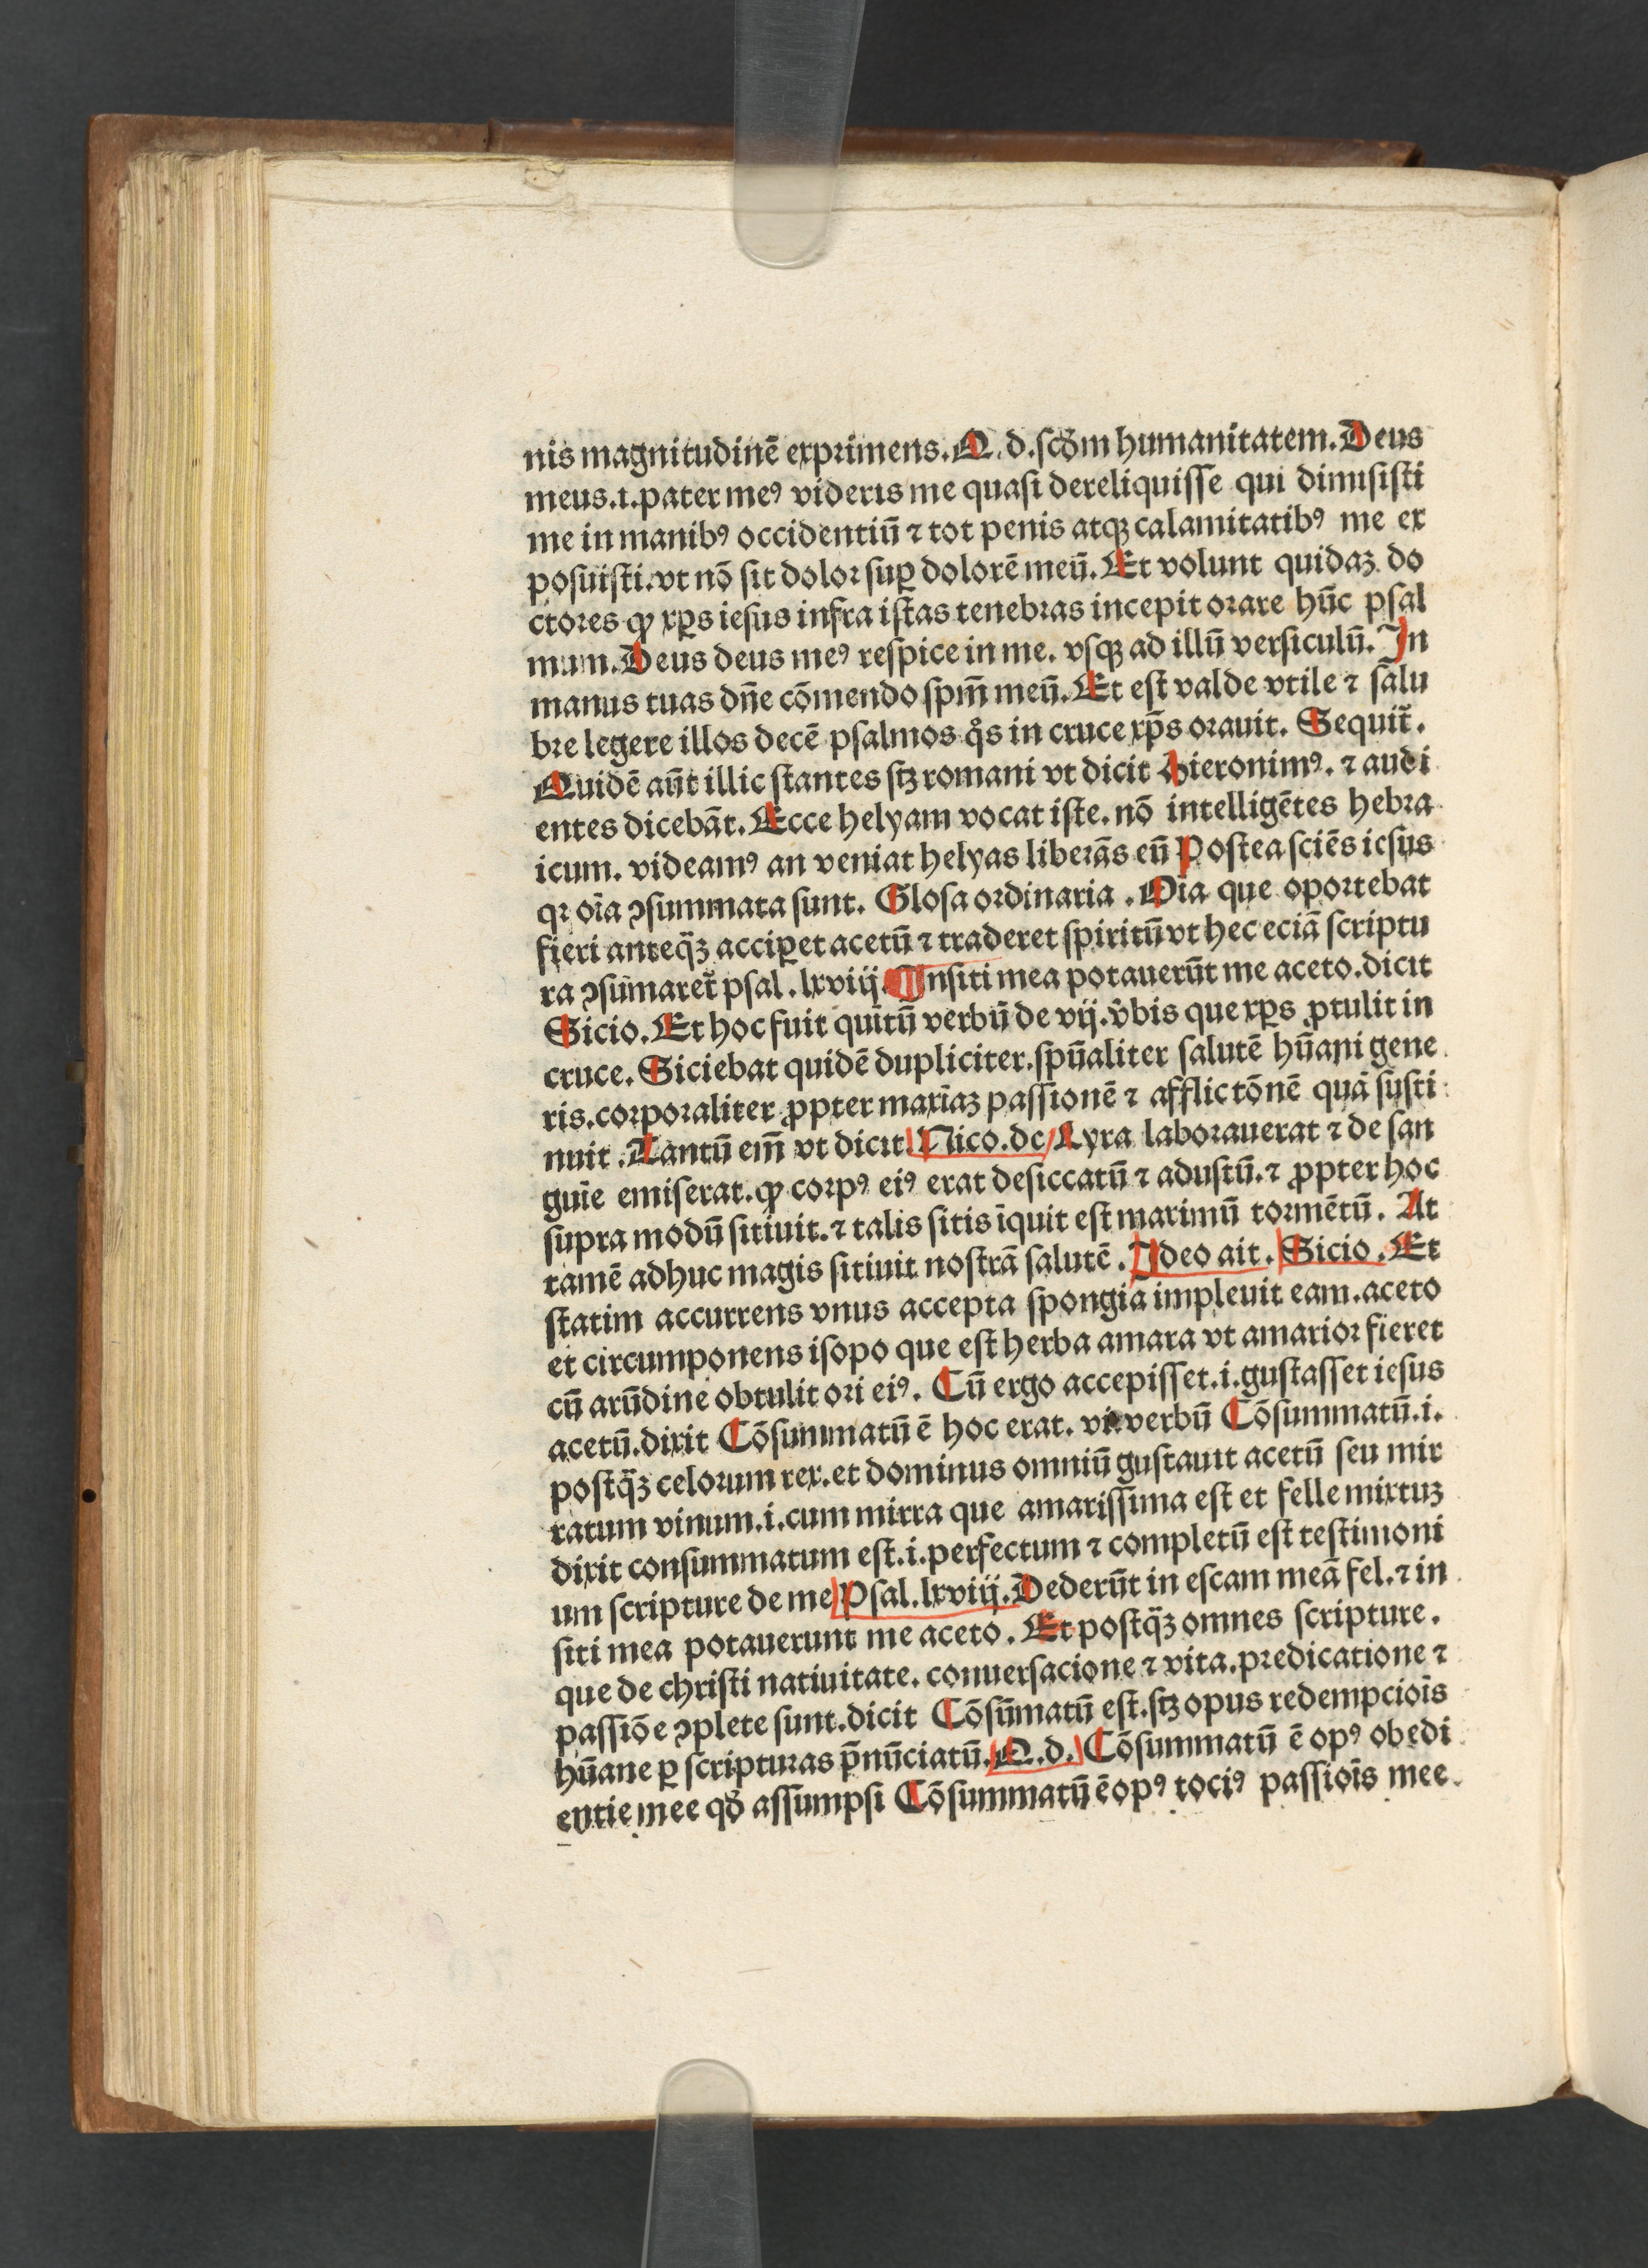 nis magnitudinē exprimens. Q. d. ſcd̄m humanitatem. Deus
meus. i. pater meꝰ videris me quaſi dereliquiſſe qui dimiſiſti
me in manibꝰ occidentiū ⁊ tot penis atqꝫ calamitatibꝰ me ex
poſuiſti. vt nō ſit dolor ſuꝑ dolorē meū. Et volunt quidaꝫ do
ctores ꝙ xp̄s ieſus infra iſtas tenebras incepit orare hūc pſal
mum. Deus deus meꝰ reſpice in me. vſqꝫ ad illū verſiculū. In
manus tuas dn̄e cōmendo ſpm̄ meū. Et eſt valde vtile ⁊ ſalu
bre legere illos decē pſalmos q̊s in cruce xp̄s orauit. Sequit̃.
Quidē aūt illic ſtantes ſꝫ romani vt dicit Hieronimꝰ. ⁊ audi
entes dicebāt. Ecce helyam vocat iſte. nō intelligētes hebra
icum. videamꝰ an veniat helyas liberās eū Poſtea ſciēs ieſus
qꝛ oīa ꝯſummata ſunt. Gloſa ordinaria. Oīa que oportebat
fieri anteq̄ꝫ acciꝑet acetū ⁊ traderet ſpiritū vt hec eciā ſcriptu
ra ꝯſūmaret̃ pſal. lxviij. In ſiti mea potauerūt me aceto. dicit
Sicio. Et hoc fuit quītū verbū de vij. v̓bis que xp̄s ꝓtulit in
cruce. Siciebat quidē dupliciter. ſpūaliter ſalutē hūani gene
ris. corporaliter ꝓpter maxīaꝫ paſſionē ⁊ afflictōnē quā ſuſti
nuit. Tantū em̄ vt dicit Nico. de Lyra laborauerat ⁊ de ſan
guīe emiſerat. ꝙ corpꝰ eiꝰ erat deſiccatū ⁊ aduſtū. ⁊ ꝓpter hoc
ſupra modū ſitiuit. ⁊ talis ſitis īquit eſt maximū tormētū. At
tamē adhuc magis ſitiuit noſtrā ſalutē. Ideo ait. Sicio. Et
ſtatim accurrens vnus accepta ſpongia impleuit eam. aceto
et circumponens iſopo que eſt herba amara vt amarior fieret
cū arūdine obtulit ori eiꝰ. Cū ergo accepiſſet. i. guſtaſſet ieſus
acetū. dixit Cōſummatū ē hoc erat. vi. verbū Cōſummatū. i.
poſtq̄ꝫ celorum rex. et dominus omniū guſtauit acetū ſeu mir
ratum vinum. i. cum mirra que amariſſima eſt et felle mixtuꝫ
dixit conſummatum eſt. i. perfectum ⁊ completū eſt teſtimoni
um ſcripture de me Pſal. lxviij. Dederūt in eſcam meā fel. ⁊ in
ſiti mea potauerunt me aceto. Et poſtq̄ꝫ omnes ſcripture.
que de chriſti natiuitate. conuerſacione ⁊ vita. predicatione ⁊
paſſiōe ꝯplete ſunt. dicit Cōſūmatū eſt. ſꝫ opus redempcioīs
hūane ꝑ ſcripturas p̄nūciatū. Q. d. Cōſummatū ē opꝰ obedi
entie mee qd̄ aſſumpſi Cōſummatū ē opꝰ tociꝰ paſſioīs mee.